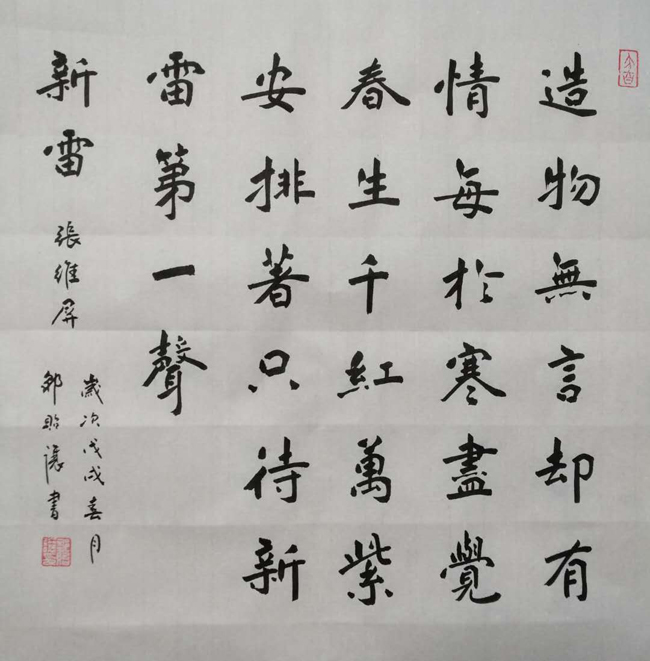 造物無言却有
情每於寒盡覺
春生千紅萬紫
安排著只待新
雷第一聲
新雷 張維屏
歲次戊戌春月
書